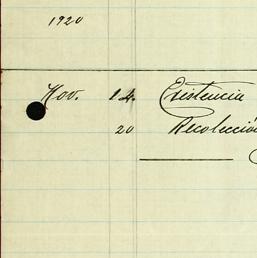 1920
Nov. 14. Existencia
20 Recolección